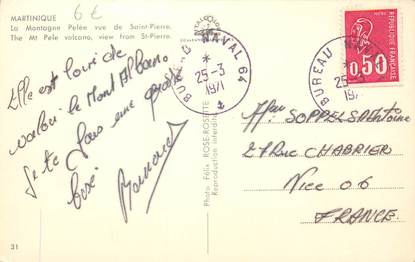 MARTINIQUE
6 €
La Montagne Pelée vue de Saint-Pierre.
The Mt Pele volcano, view from St-Pierre.
Elle est loin de
valoir le Mont Alban
Je te fais une grosse
bise
Bernard
BUREAU NAVAL 64
25-3
1971
BUREAU NA
25-
197
0,50
Photo Félix ROSE-ROSETTE
Reproduction interdite
Mr SOPPELSA Antoine
27 Rue CHABRIER
Nice 06
FRANCE
31